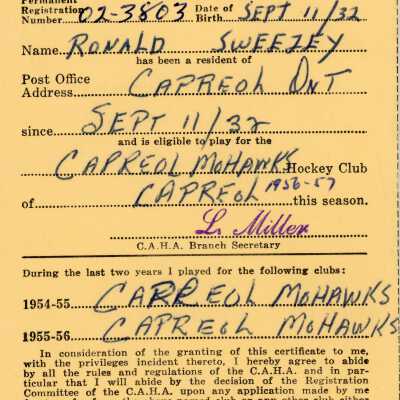 Permanent
Registration Date of
Number 02-3803 Birth SEPT 11/32
Name RONALD SWEEZEY
has been a resident of
Post Office
Address CAPREOL ONT
since SEPT 11/32
and is eligible to play for the
CAPREOL MOHAWKS Hockey Club
of CAPREOL 1956-57 this season.
L. Miller
C.A.H.A. Branch Secretary
During the last two years I played for the following clubs:
1954-55 CAPREOL MOHAWKS
1955-56 CAPREOL MOHAWKS
In consideration of the granting of this certificate to me,
with the privileges incident thereto, I hereby agree to abide
by all the rules and regulations of the C.A.H.A. and in par-
ticular that I will abide by the decision of the Registration
Committee of the C.A.H.A. upon any application made by me